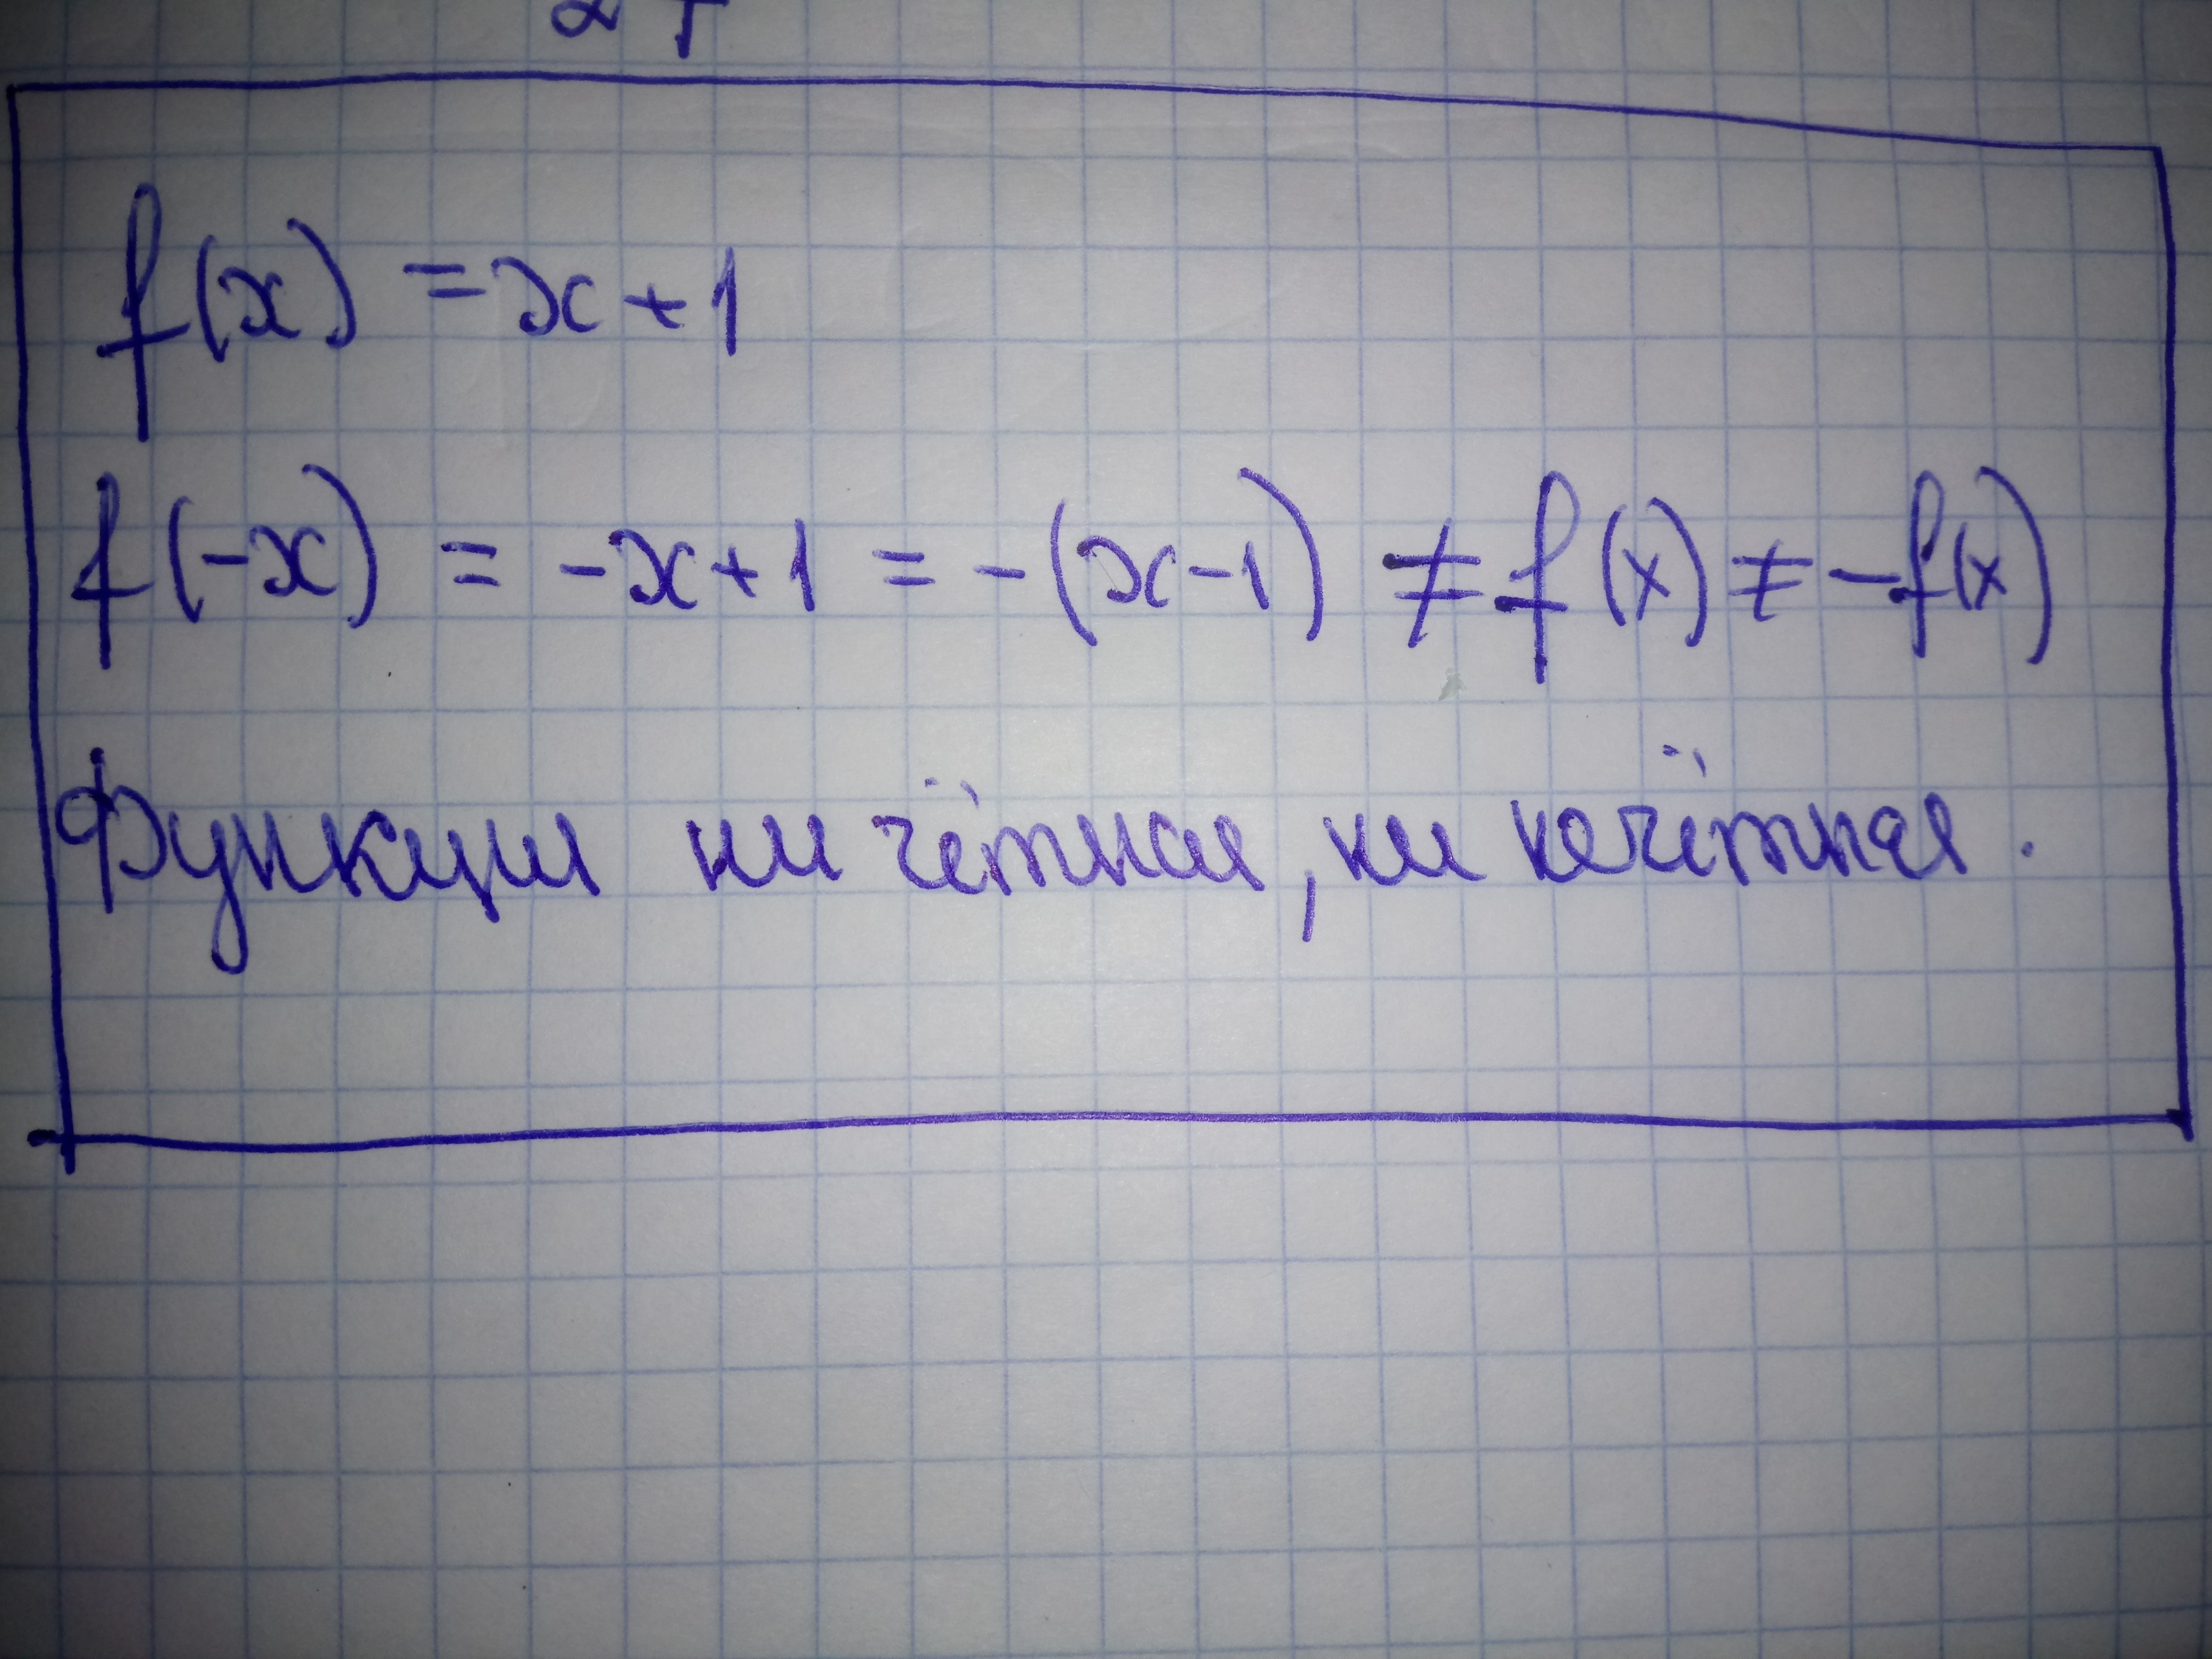 f(x) = x+1
f(-x) = -x+1 = -(x-1) ≠ f(x) ≠ -f(x)
Функция ни чётная, ни нечётная.